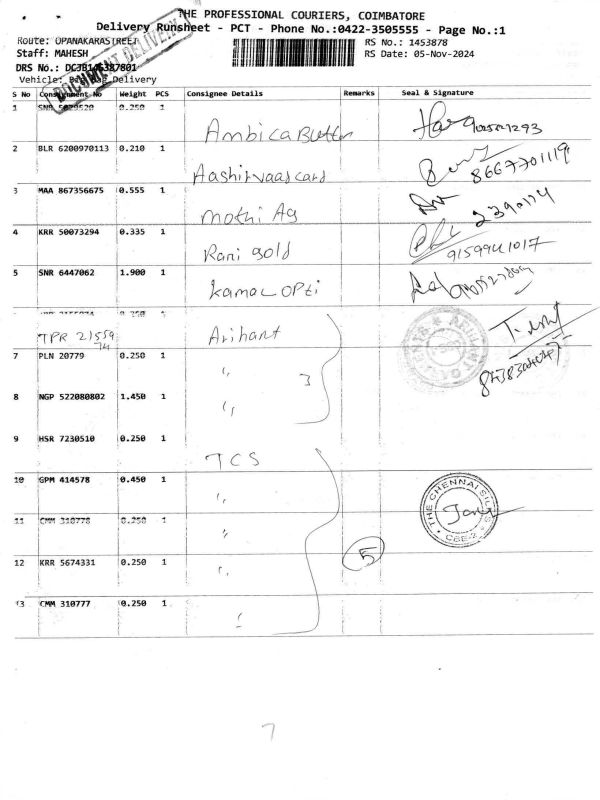 THE PROFESSIONAL COURIERS, COIMBATORE
Delivery Runsheet - PCT - Phone No.:0422-3505555 - Page No.:1
Route: OPANAKARASTREET
RS No.: 1453878
Staff: MAHESH
RS Date: 05-Nov-2024
DRS No.:
Vehicle: Delivery
DOCUMENT DELIVERY
S No Consignment No Weight PCS Consignee Details Remarks Seal & Signature
1 SNR 0.250 1 Ambica Butter
2 BLR 6200970113 0.210 1 Aashirvaad card 8667701119
3 MAA 867356675 0.555 1 Mothi Ag
4 KRR 50073294 0.335 1 Rani gold 9159941017
5 SNR 6447062 1.900 1 Kamal Opti
TPR 21559 74 Arihant
7 PLN 20779 0.250 1 " 3
8 NGP 522080802 1.450 1 "
9 HSR 7230510 0.250 1 TCS
10 GPM 414578 0.450 1 "
THE CHENNAI SILKS
CBE-2
11 CMM 310778 0.250 1 "
5
12 KRR 5674331 0.250 1 "
13 CMM 310777 0.250 1 "
7